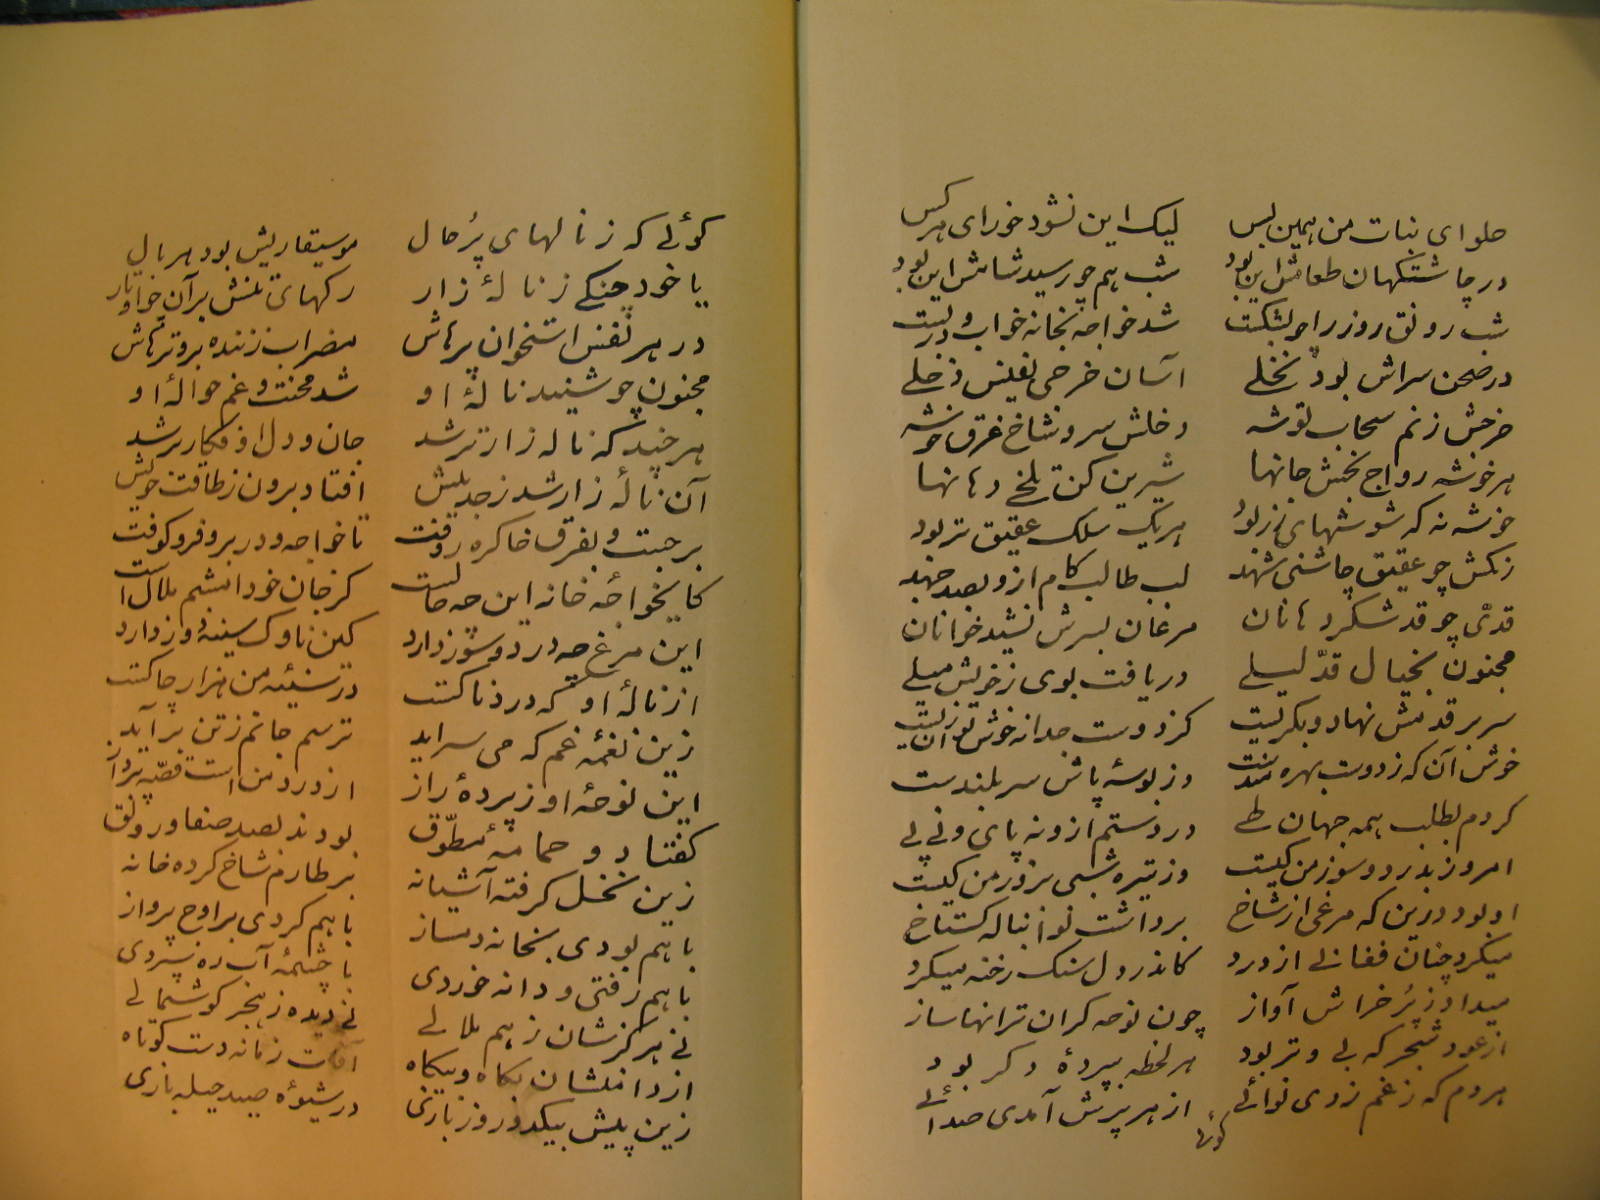 حلوای نبات من همین بس لیک این نشود خورای هر کس
در چاشتگهان طعامش این بود شب هم چو رسید شامش این بود
شب رونق روز را چو بشکست شد خواجه بخانه خواب و در بست
در صحن سراش بود نخلی آسان خرجی نفیس دخلی
خرجش ز نم سحاب توشه دخلش سر و شاخ غرق خوشه
هر خوشه رواج بخش جانها شیرین کن تلخی دهانها
خوشه نه که شوشهای زر بود هر یک سلک عقیق تر بود
رنگش چو عقیق چاشنی شهد لب طالب کام ازو بصد جهد
قدی چو قد شکر دهانان مرغان بسرش نشید خوانان
مجنون بخیال قدّ لیلی دریافت بوی ز خویش میلی
سر بر قدمش نهاد و بگریست کز دوست جدا نه خوش توان زیست
خوش آن که ز دوست بهره مندست وز بوسهٔ پاش سربلندست
کردم بطلب همه جهان طی در دستم ازو نه پای و نی پی
امروز بدرد و سوز من کیست وز تیره شبی بروز من کیست
او بود درین که مرغی از شاخ برداشت نوا بناله گستاخ
میکرد چنان فغانی از درد کاندر دل سنگ رخنه میکرد
میداد ز پُر خراش آواز چون نوحه گران ترانها ساز
از عود شجر که بی وتر بود هر لحظه بپردهٔ دگر بود
هر دم که ز غم زدی نوائی از هر پرش آمدی صدائی
گوئی که ز نالهای پُر حال موسیقاریش بود هر بال
یا خود چنگی ز نالهٔ زار رگهای تنش بر آن چو اوتار
در هر نفس استخوان پرهاش مضراب زننده بر وترهاش
مجنون چو شنید نالهٔ او شد محنت و غم حوالهٔ او
هر چند که ناله زارتر شد جان و دل او فکارتر شد
آن نالهٔ زار شد ز حد بیش افتاد برون ز طاقت خویش
برجست و بفرق خاک ره روفت تا خواجه و در برو فرو کوفت
کایخواجهٔ خانه این چه حالست کز جان خود امشبم ملالست
این مرغ چه درد و سوز دارد کین ناوک سینه دوز دارد
از نالهٔ او که دردناکست در سینهٔ من هزار چاکست
زین نغمهٔ غم که می سراید ترسم جانم ز تن برآید
این نوحهٔ او ز پردهٔ راز از درد من است قصّه پرداز
گفتا دو حمامهٔ مطوّق بودند بصد صفا و رونق
زین نخل گرفته آشیانه بر طارم شاخ کرده خانه
با هم بودی بخانه دمساز با هم کردی بر اوج پرواز
با هم رفتی و دانه خوردی با چشمهٔ آب ره سپردی
نی هرگزشان ز هم ملالی نی دیده ز هجر گوشمالی
از دامنشان بگاه و بیگاه آفات زمانه دست کوتاه
زین پیش بیکدو روز بازی در شیوهٔ صید حیله بازی